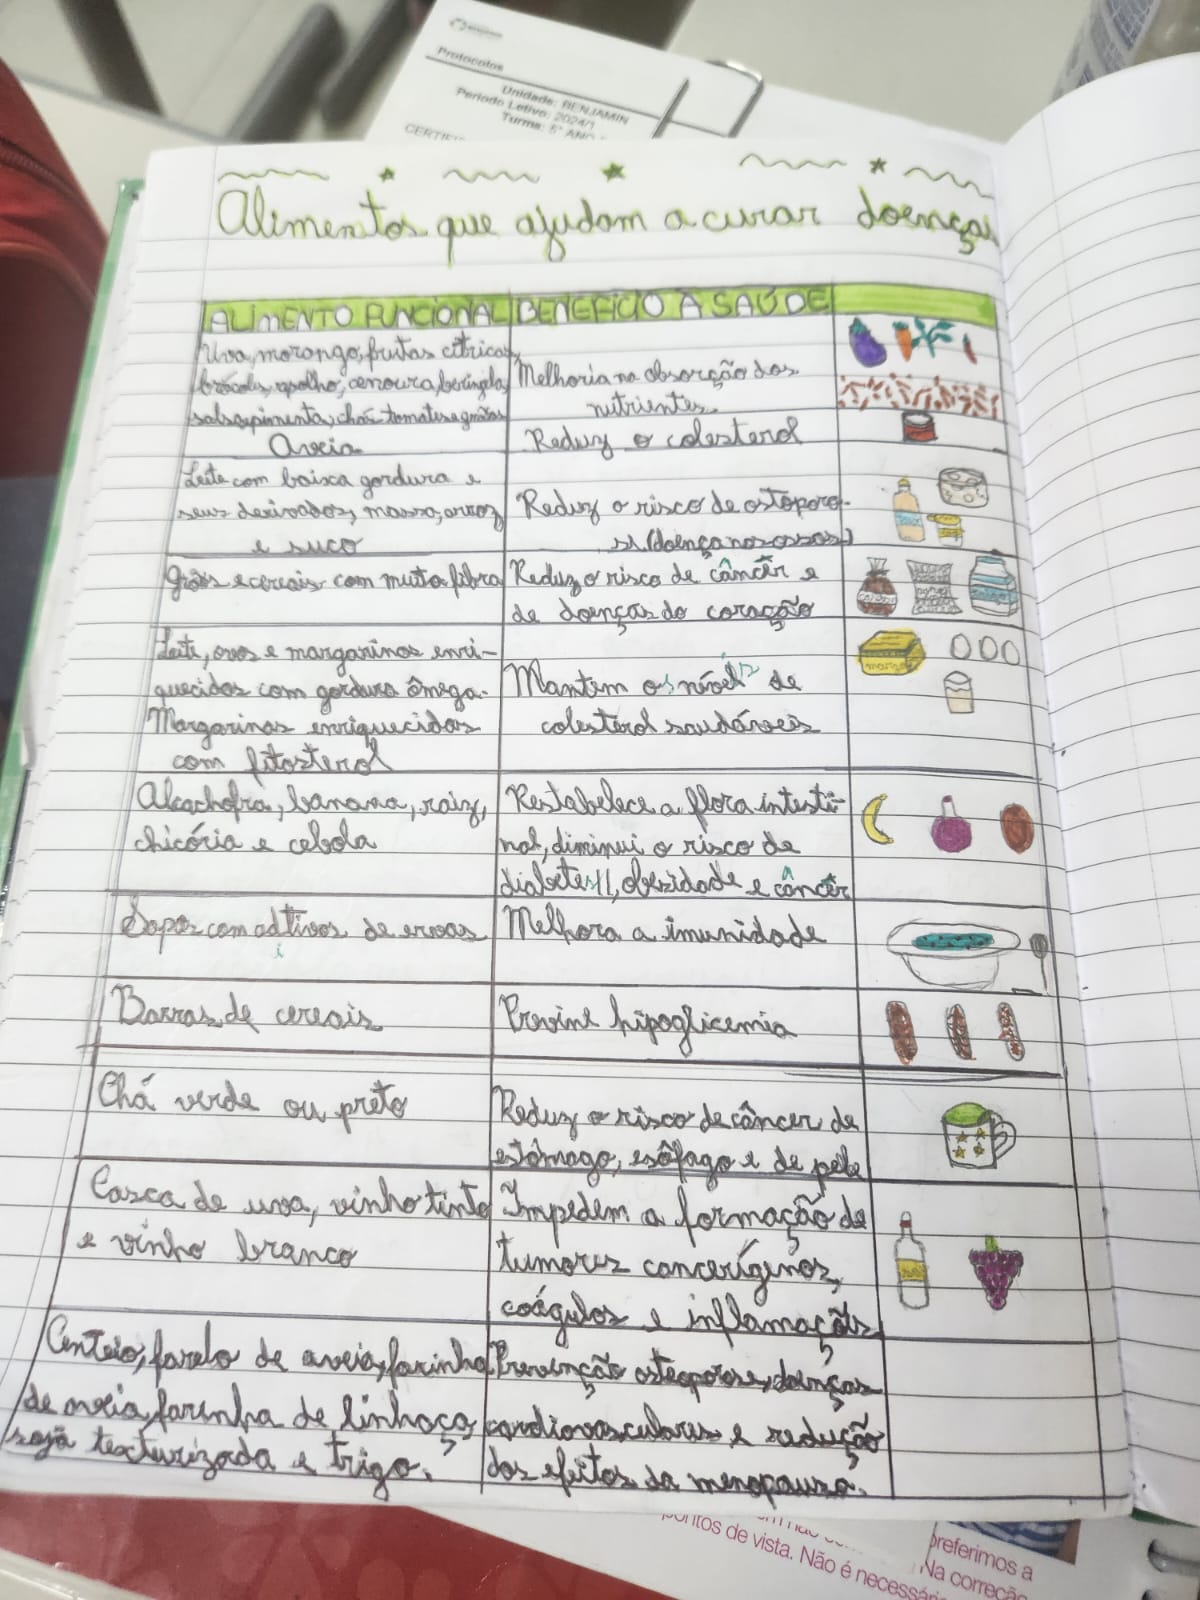 Protocolos
Unidade: BENJAMIN
Período Letivo: 2024/1
Turma: 5° ANO
Alimentos que ajudam a curar doenças
ALIMENTO FUNCIONAL BENEFÍCIO À SAÚDE
Uva, morango, frutas cítricas,
brócolis, repolho, cenoura, berinjela,
salsa, pimenta, chá, tomates e grãos
Melhoria na absorção dos
nutrientes.
Aveia
Reduz o colesterol
Leite com baixa gordura e
seus derivados, massa, arroz
e suco
Reduz o risco de ostoporo-
si. (doença nos ossos)
Grãos e cereais com muita fibra
Reduz o risco de câncêr e
de doenças do coração
Leite, ovos e margarinas enri-
quecidos com gordura ômega.
Margarinas enriquecidas
com fitosterol
Mantem os níveis de
colesterol saudáveis
Alcachofra, banana, raiz,
chicória e cebola
Restabelece a flora intesti-
nal, diminui o risco de
diabetes II, obezidade e câncêr
Sopas com aditivos de ervas
Melhora a imunidade
Barras de cereais
Previne hipoglicemia
Chá verde ou preto
Reduz o risco de câncer de
estômago, esôfago e de pele
Casca de uva, vinho tinto
e vinho branco
Impedem a formação de
tumores cancerígenos,
coágulos e inflamações
Centeio, farelo de aveia, farinha
de aveia, farinha de linhaça,
soja texturizada e trigo.
Prevenção osteoporose, doenças
cardiovasculares e redução
dos efeitos da menopausa.
pontos de vista. Não é necessário
preferimos a
Na correção